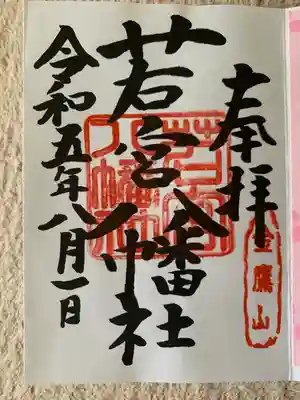 奉拝
金鷹山
若宮八幡社
令和五年八月一日